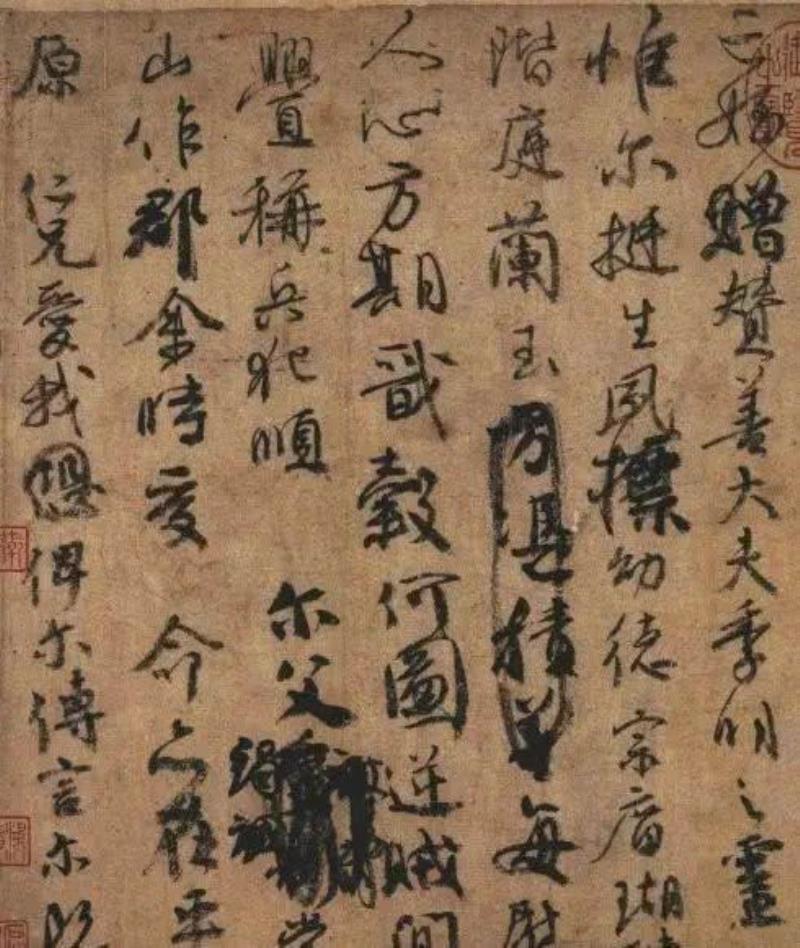 亡姪贈贊善大夫季明之靈
惟爾挺生夙標幼德宗廟瑚
階庭蘭玉方憑積善每慰
人心方期戩穀何圖逆賊間
舋稱兵犯順爾父
山作郡余時受命亦在平
原仁兄愛我恐俾爾傳言爾既